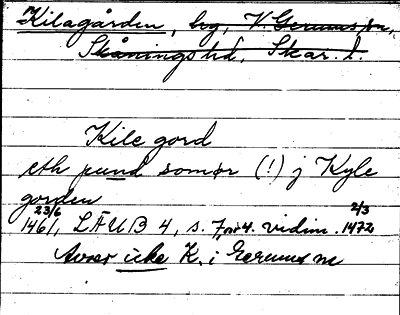 Kilagården, bg, V. Gerums sn,
Skånings hd, Skar. l.
Kile gord
eth pund somør (!) j Kyle
gorden
23/6 1461, LÄUB 4, s. 7, vidim. 2/3 1472
Avser icke K. i Gerums sn